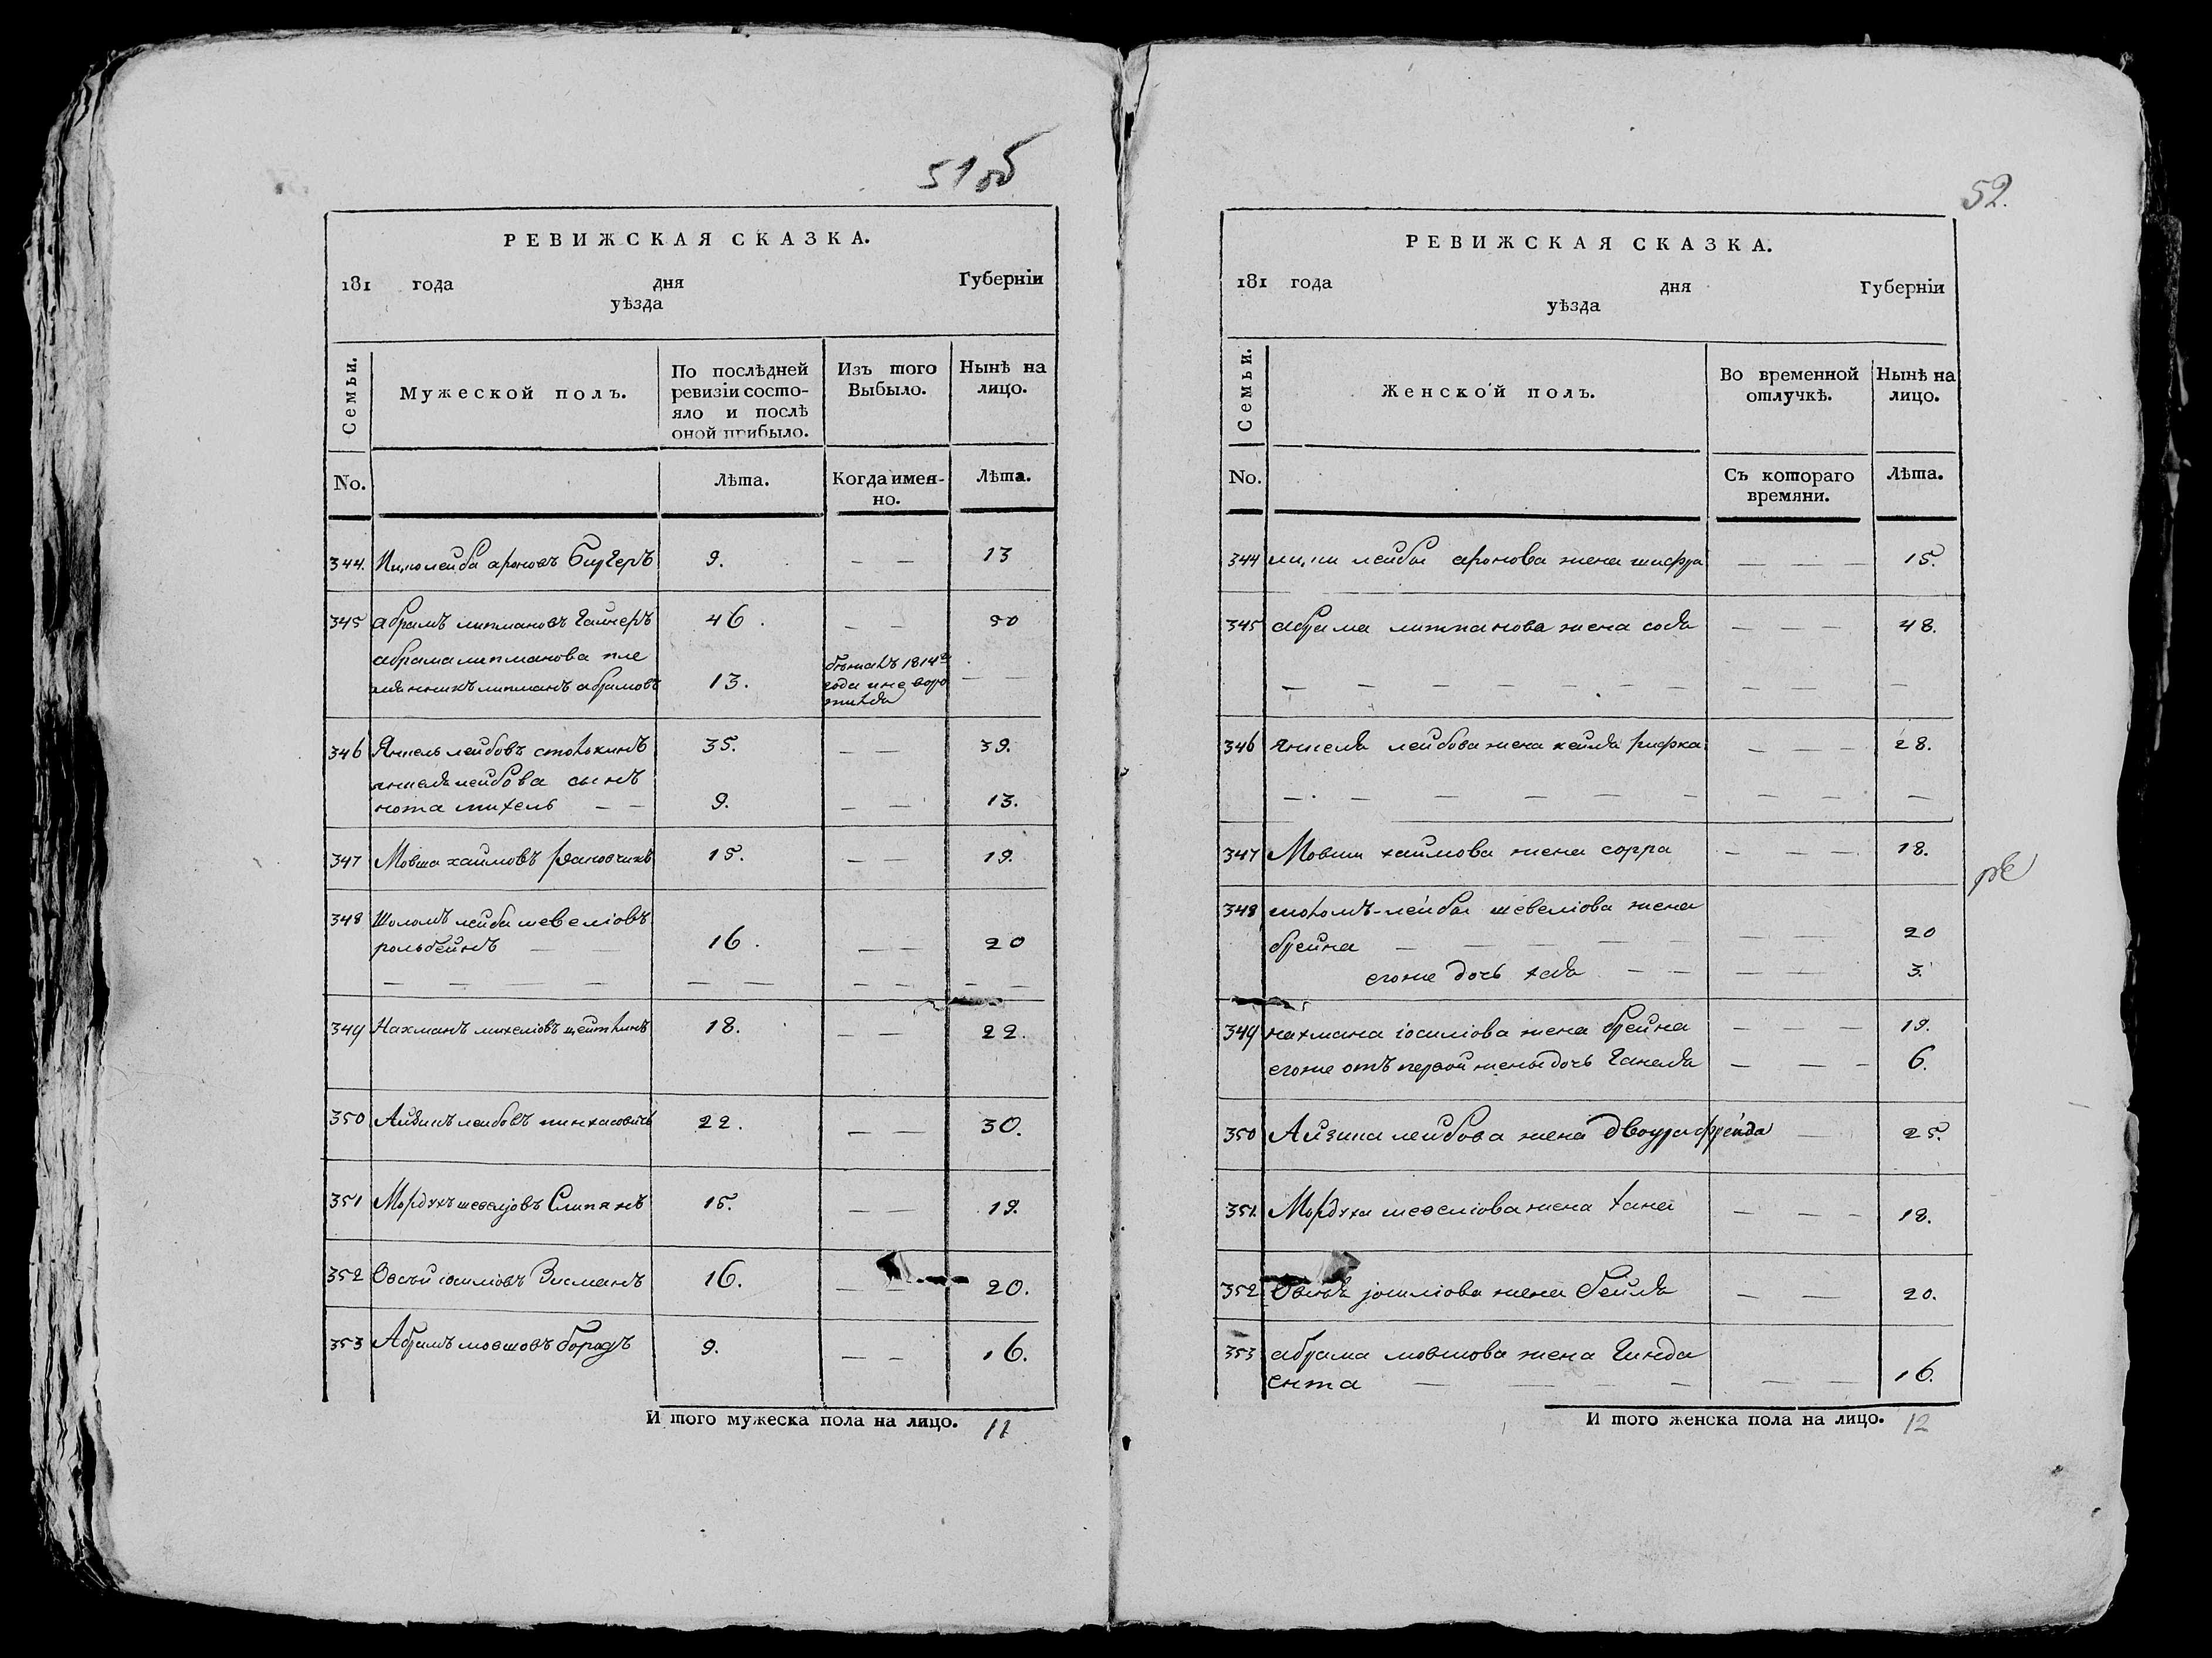 51 об
РЕВИЖСКАЯ СКАЗКА.
181 года дня Губерніи
уѣзда
Семьи.
Мужеской полъ.
По послѣдней ревизіи состо-
яло и послѣ оной прибыло.
Изъ того Выбыло.
Нынѣ на лицо.
No.
Лѣта.
Когда имен-
но.
Лѣта.
344. лейба ароновъ 9. — — 13
345 абрамъ липмановъ 46. — — 50
абрама липманова пле
мянникъ липманъ абрамовъ 13. бѣжалъ 1814го года и не воро тился — —
346 Янкель лейбовъ 35. — — 39.
янкеля лейбова сынъ
нота михель — — 9. — — 13.
347 Мовша хаимовъ 15. — — 19.
348 Шоломъ лейба шевеліовъ
рольбейнъ — — 16. — — 20
— — — — — — — — — —
349 Нахманъ цейтлинъ 18. — — 22.
350 лейбовъ пинхасовичъ 22. — — 30.
351 Мордухъ Слипянъ 15. — — 19.
352 Овсѣй Висманъ 16. — — 20.
353 Абрамъ мовшовъ 9. — — 16.
И того мужеска пола на лицо. 11
52.
РЕВИЖСКАЯ СКАЗКА.
181 года дня Губерніи
уѣзда
Семьи.
Женской полъ.
Во временной отлучкѣ.
Нынѣ на лицо.
No.
Съ котораго времяни.
Лѣта.
344 лейбы аронова жена шифра — — — 15.
345 абрама липманова жена сося — — — 48.
— — — — — — — — —
346 янкеля лейбова жена кейля рифка — — — 28.
— — — — — — — — —
347 Мовши хаимова жена сорра — — — 18.
348 шоломъ-лейбы шевеліова жена
брейна — — — — — — — 20
егоже дочь хася — — — — 3.
349 нахмана іосиліова жена брейна — — — 19.
егоже отъ первой жены дочь Ганеля — — — 6.
350 Айзика лейбова жена двойра фрейда — 25.
351. Мордуха шевеліова жена хана — — — 18.
352 жена бейля — — 20.
353 абрама мовшова жена Гинда
ента — — — — — — 16.
И того женска пола на лицо. 12